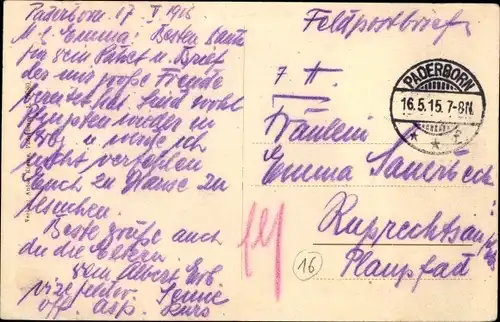 Paderborn 17 V 1915
M. l. Emma! Besten Dank
für Dein Paket u. Brief
der mir große Freude
bereitet hat. Sind wohl
Pfingsten wieder in
u. werde ich
nicht verfehlen
Euch zu Hause zu
besuchen.
Beste Grüße auch
an die Eltern
Dein Albert Erb.
vizefeldw.
off. Asp.
Feldpostbrief
PADERBORN
16.5.15.7-8N
* * 2
Fräulein
Emma Sauerbeck
Ruprechtsau
16